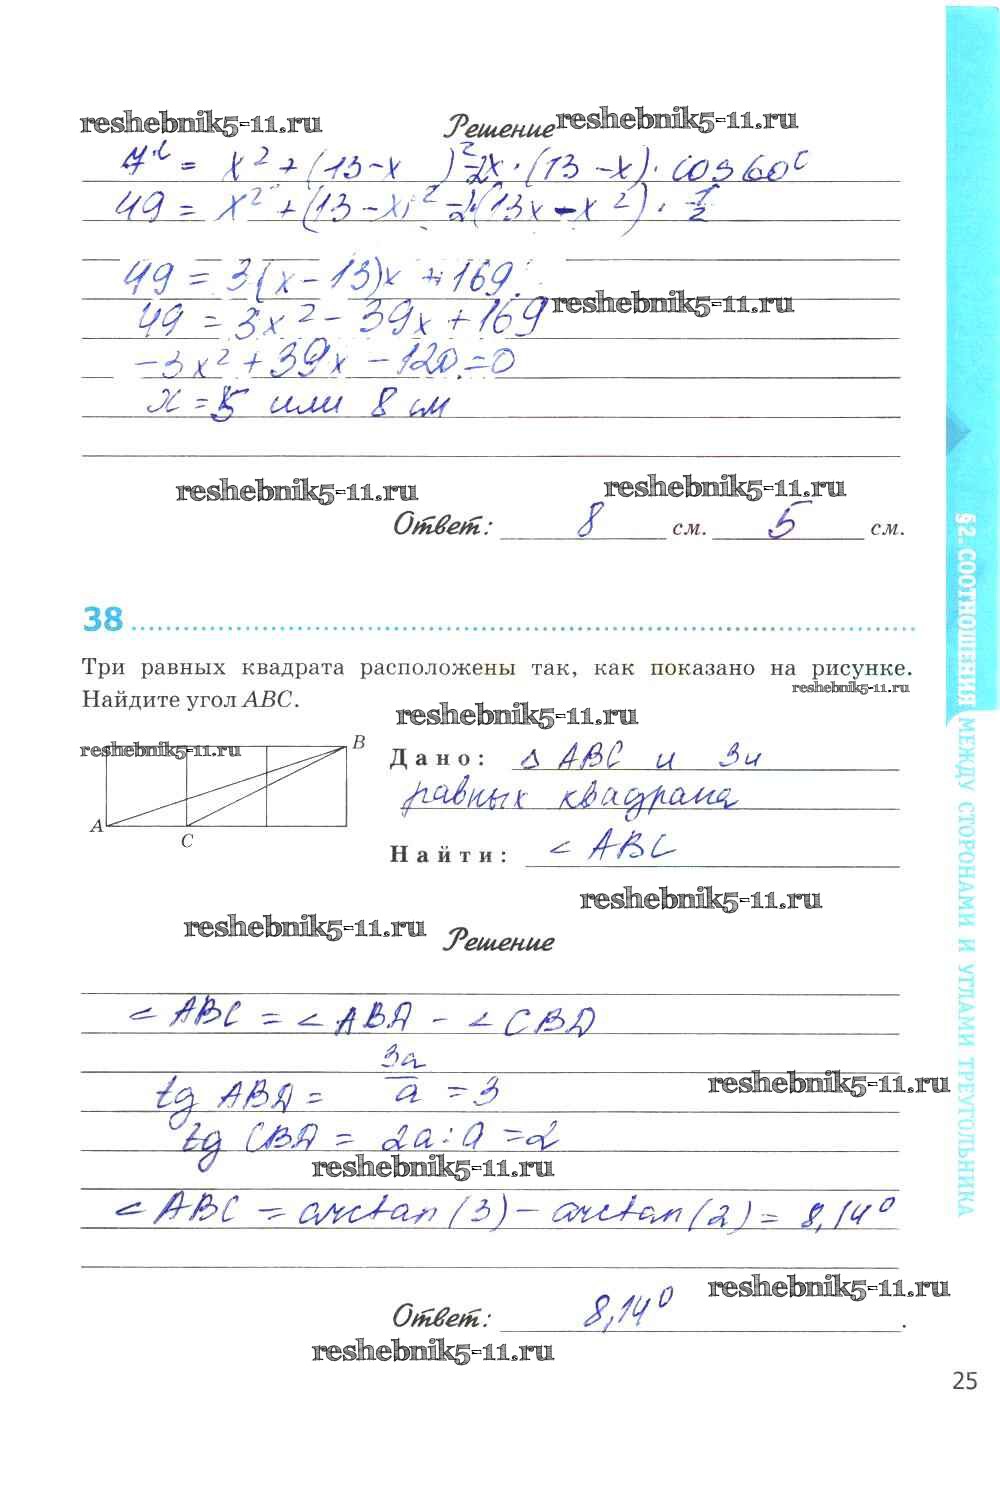 reshebnik5-11.ru
Решение reshebnik5-11.ru
7² = x² + (13-x)² - 2x · (13-x) · cos 60°
49 = x² + (13-x)² - 2(13x - x²) · 1/2
49 = 3(x-13)x + 169
reshebnik5-11.ru
49 = 3x² - 39x + 169
-3x² + 39x - 120 = 0
x = 5 или 8 см
reshebnik5-11.ru reshebnik5-11.ru
Ответ: 8 см. 5 см.
38
Три равных квадрата расположены так, как показано на рисунке.
Найдите угол ABC.
reshebnik5-11.ru
reshebnik5-11.ru
reshebnik5-11.ru
B
A
C
Дано: Δ ABC и 3и
равных квадрата
Найти: ∠ ABC
reshebnik5-11.ru
reshebnik5-11.ru
Решение
∠ ABC = ∠ ABD - ∠ CBD
tg ABD = 3a/a = 3
reshebnik5-11.ru
tg CBD = 2a : a = 2
reshebnik5-11.ru
∠ ABC = arctan(3) - arctan(2) = 8,14°
reshebnik5-11.ru
Ответ: 8,14°.
reshebnik5-11.ru
25
§2. СООТНОШЕНИЯ МЕЖДУ СТОРОНАМИ И УГЛАМИ ТРЕУГОЛЬНИКА